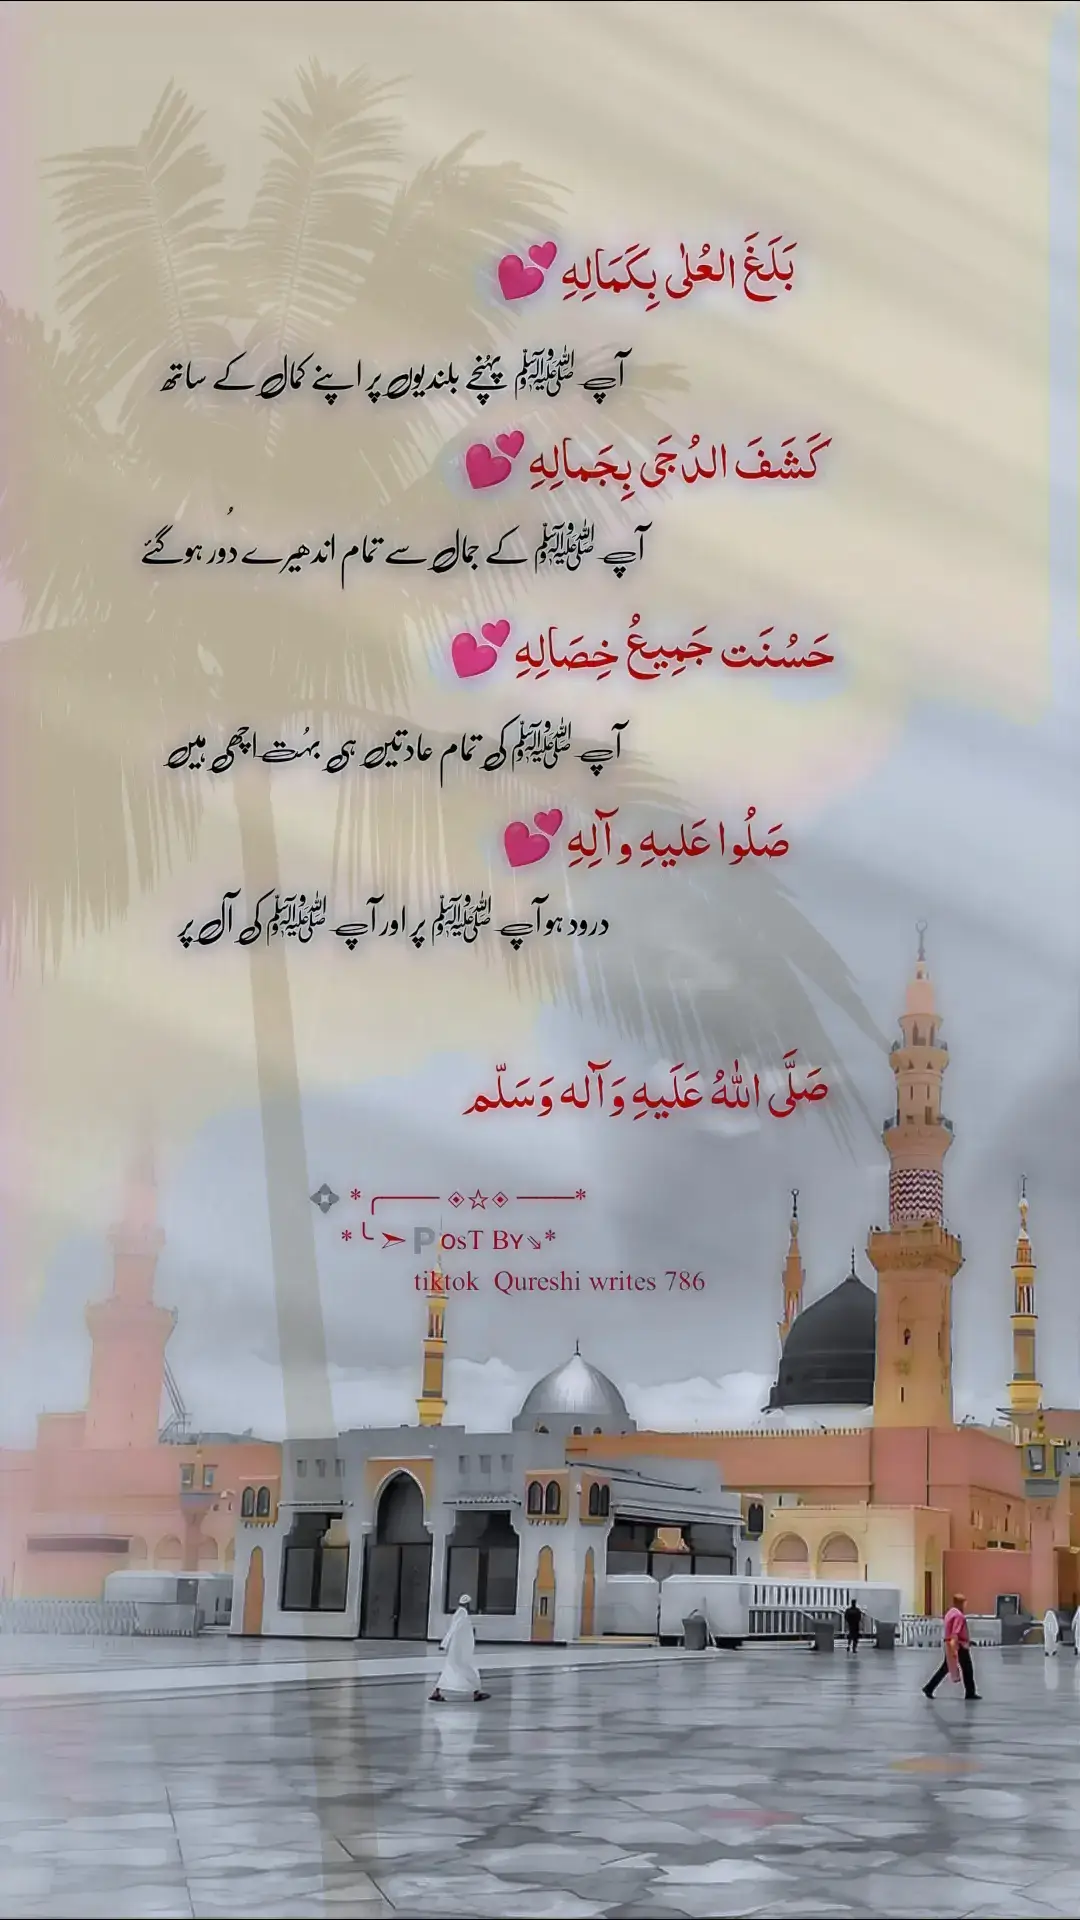 بَلَغَ العُلٰی بِكَمَالِهِ 💕
آپ ﷺ پہنچے بلندیوں پر اپنے کمال کے ساتھ
كَشَفَ الدُجَی بِجَمالِهِ 💕
آپ ﷺ کے جمال سے تمام اندھیرے دُور ہو گئے
حَسُنَت جَمِيعُ خِصَالِهِ 💕
آپ ﷺ کی تمام عادتیں ہی بہُت اچھی ہیں
صَلُوا عَليهِ وآلِهِ 💕
درود ہو آپ ﷺ پر اور آپ ﷺ کی آل پر
صَلَّی اللهُ عَلَيهِ وَآله وَسَلّم
💠 * ╭─── ◈☆◈ ───*
* ╰ ➣ 🅿osT Bʏ⇘*
tiktok Qureshi writes 786